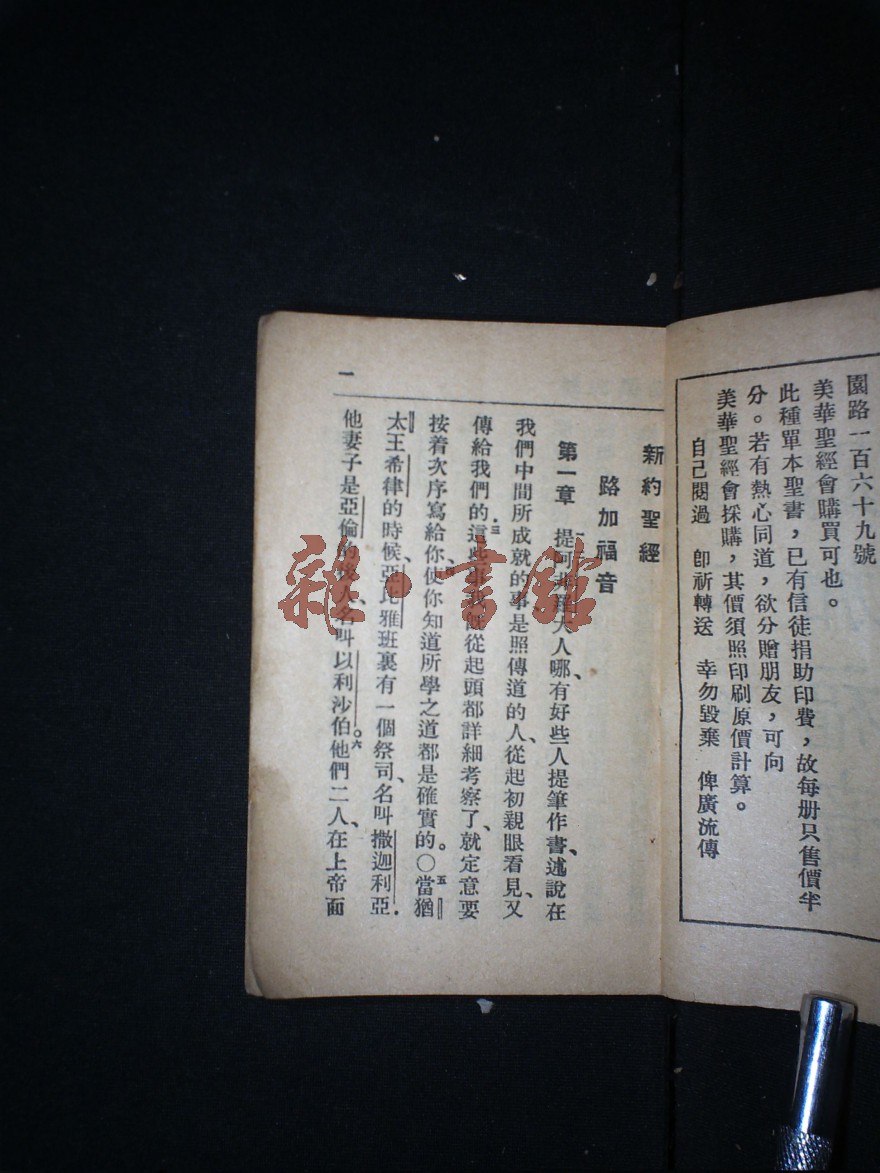 園路一百六十九號
美華聖經會購買可也。
此種單本聖書,已有信徒捐助印費,故每册只售價半
分。若有熱心同道,欲分贈朋友,可向
美華聖經會採購,其價須照印刷原價計算。
自己閱過 卽祈轉送 幸勿毀棄 俾廣流傳
新約聖經
路加福音
第一章 提阿非羅大人哪、有好些人提筆作書、述說在
我們中間所成就的事、是照傳道的人、從起初親眼看見、又
傳給我們的。三這些事我旣從起頭都詳細考察了、就定意要
按着次序寫給你、四使你知道所學之道都是確實的。〇五當猶
太王希律的時候、亞比雅班裏有一個祭司、名叫撒迦利亞.
他妻子是亞倫的後人、名叫以利沙伯。六他們二人、在上帝面
一
雜·書館